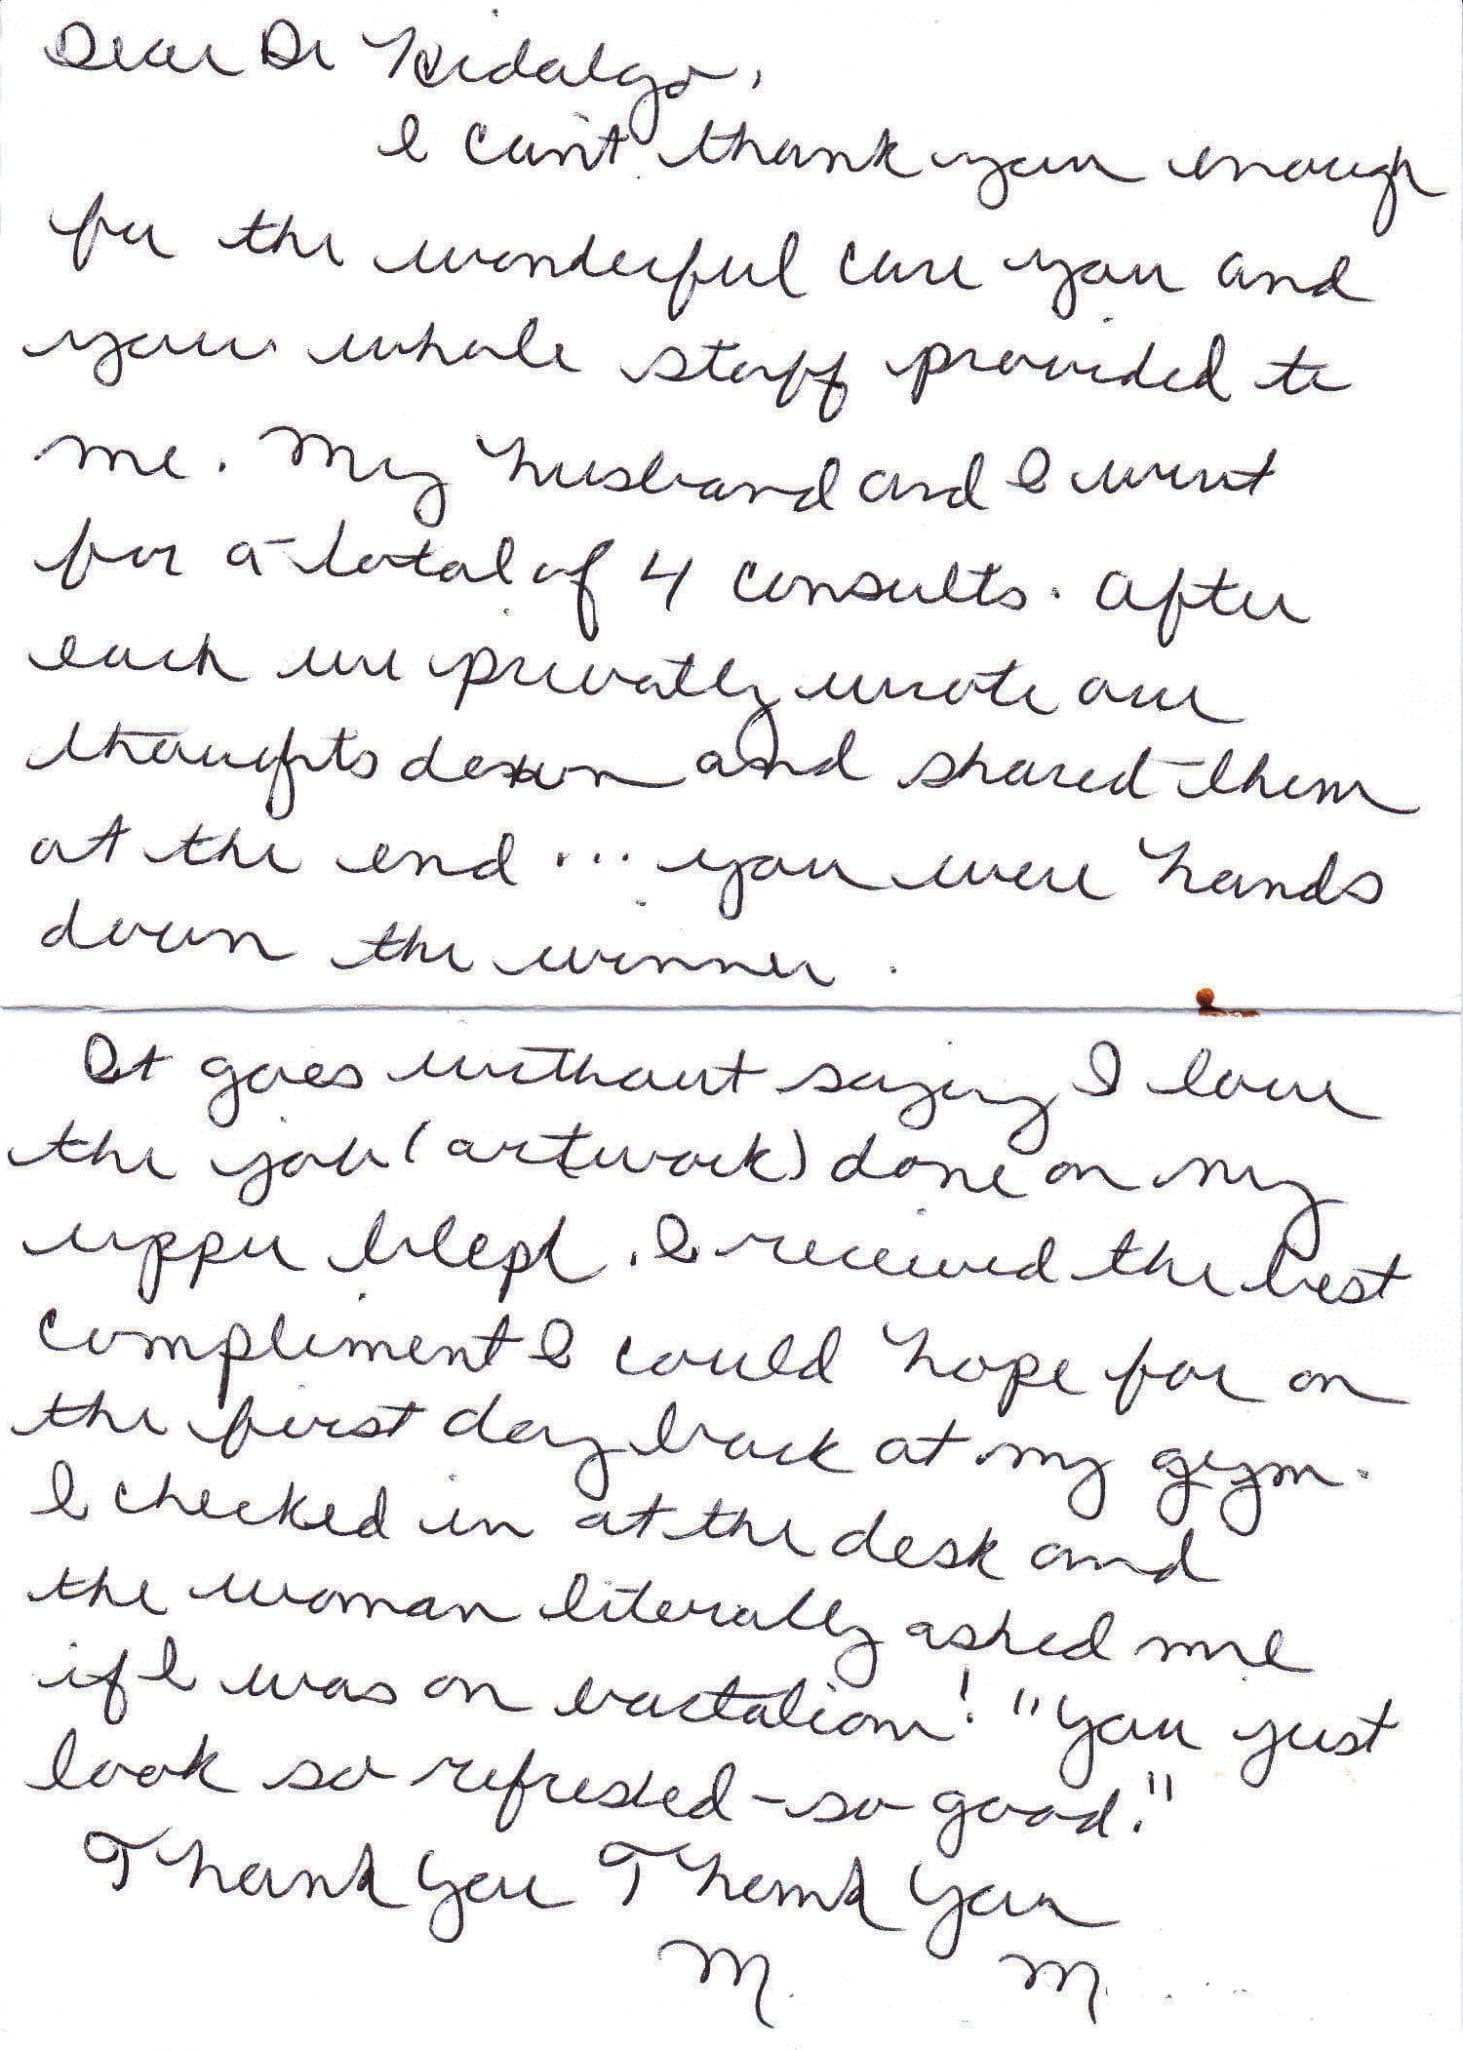 Dear Dr Hidalgo,
I can't thank you enough
for the wonderful care you and
your whole staff provided to
me. My husband and I went
for a total of 4 consults. After
each we privatly wrote our
thoughts down and shared them
at the end ... you were hands
down the winner.
It goes without saying I love
the job (artwork) done on my
upper bleph. I received the best
compliment I could hope for on
the first day back at my gym.
I checked in at the desk and
the woman literally asked me
if I was on vactation! "You just
look so refreshed - so good."
Thank you Thank you
M. M.